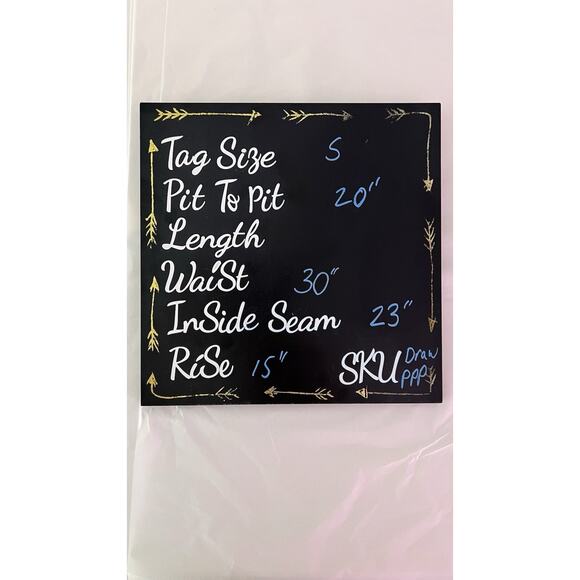 Tag Size S
Pit To Pit 20"
Length
WaiSt 30"
InSide Seam 23"
RiSe 15" SKU Draw
PPP